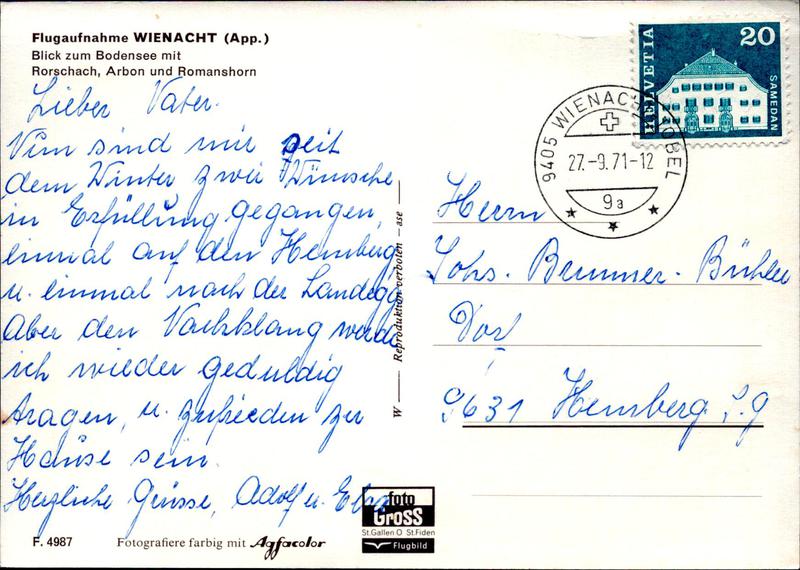 Flugaufnahme WIENACHT (App.)
Blick zum Bodensee mit
Rorschach, Arbon und Romanshorn
Lieber Vater.
Nun sind mir seit
dem Winter zwei Wünsche
in Erfüllung gegangen,
einmal auf den Hemberg
u. einmal nach der Landegg
Aber den werde
ich wieder geduldig
tragen, u. zufrieden zu
Hause sein.
Herzliche Grüsse, Adolf u.
F. 4987
Fotografiere farbig mit Agfacolor
W — Reproduktion verboten — ase
foto
GROSS
St.Gallen O St.Fiden
Flugbild
HELVETIA
20
SAMEDAN
9405 WIENACHT-TOBEL
27.-9.71-12
9a
Herrn
Johs. Brunner-Bühler
Dorf
9631 Hemberg S.G